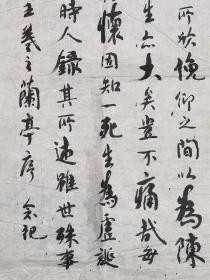 所欣俛仰之间以為陳
生亦大矣豈不痛哉每
懷固知一死生為虛誕
時人錄其所述雖世殊事
王羲之蘭亭序